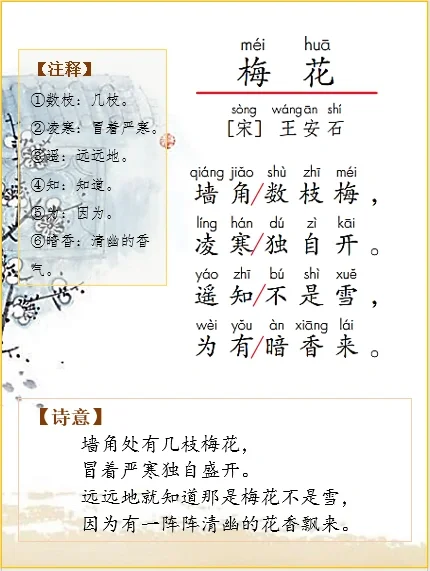 méi huā
梅 花
sòng wáng ān shí
[宋] 王 安 石
【注释】
①数枝：几枝。
②凌寒：冒着严寒。
③遥：远远地。
④知：知道。
⑤为：因为。
⑥暗香：清幽的香
气。
qiáng jiǎo shù zhī méi
墙 角/数 枝 梅，
líng hán dú zì kāi
凌 寒/独 自 开。
yáo zhī bú shì xuě
遥 知/不 是 雪，
wèi yǒu àn xiāng lái
为 有/暗 香 来。
【诗意】
墙角处有几枝梅花，
冒着严寒独自盛开。
远远地就知道那是梅花不是雪，
因为有一阵阵清幽的花香飘来。